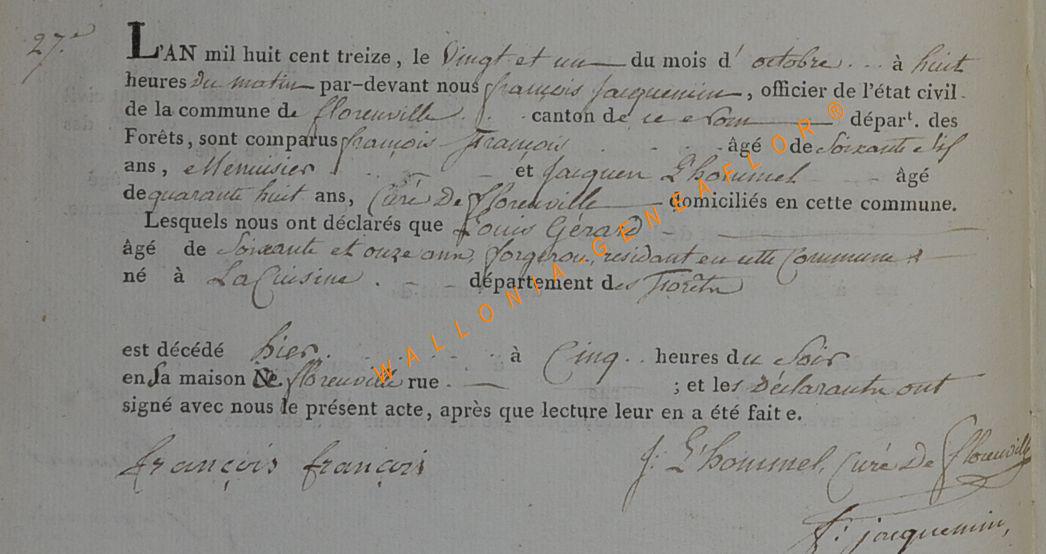 27.e
L'AN mil huit cent treize, le Vingt et un du mois d'octobre à huit
heures du matin par-devant nous françois Jacquemin, officier de l'état civil
de la commune de florenville canton de ce Nom départ. des
Forêts, sont comparus françois françois âgé de Soixante
ans, Menuisier et Jacques L'hommel âgé
de quarante huit ans, Curé De florenville domiciliés en cette commune.
Lesquels nous ont déclarés que Louis Gérard
âgé de Soixante et onze ans, forgeron, residant en cette Commune &
né à La Cuisine département des Forêts
est décédé hier à Cinq heures du Soir
en Sa maison de florenville rue ; et les Déclarants ont
signé avec nous le présent acte, après que lecture leur en a été faite.
françois françois
J: L'hommel, Curé De florenville
f: jacquemin,
WALLONIA-GENEAFLOR®